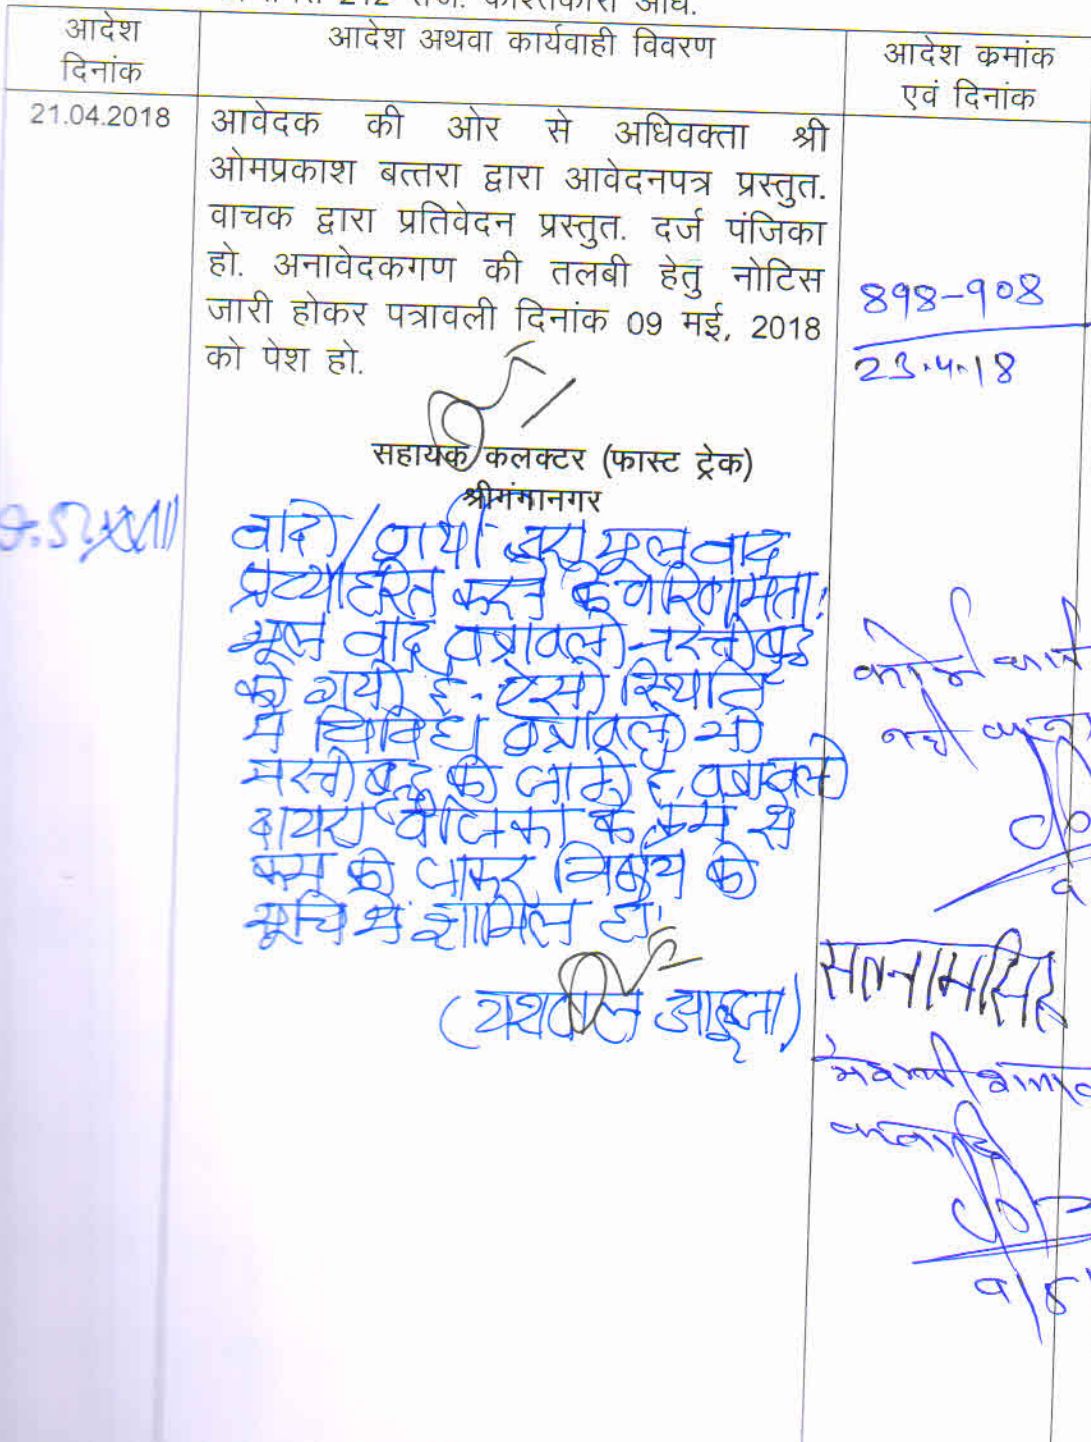 212 राज. काश्तकारी अधि.
आदेश दिनांक
आदेश अथवा कार्यवाही विवरण
आदेश क्रमांक एवं दिनांक
21.04.2018
आवेदक की ओर से अधिवक्ता श्री
ओमप्रकाश बत्तरा द्वारा आवेदनपत्र प्रस्तुत.
वाचक द्वारा प्रतिवेदन प्रस्तुत. दर्ज पंजिका
हो. अनावेदकगण की तलबी हेतु नोटिस
जारी होकर पत्रावली दिनांक 09 मई, 2018
को पेश हो.
898-908
23.4.18
सहायक कलक्टर (फास्ट ट्रेक)
श्रीगंगानगर
वादी/प्रार्थी द्वारा मूल वाद
प्रत्याहरित करने के परिणामतः
मूल वाद पत्रावली नस्तीबद्ध
की गयी है. ऐसी स्थिति
में विविध पत्रावली भी
नस्तीबद्ध की जाती है. पत्रावली
दायरा पंजिका के क्रम से
कम की जाकर निर्णय की
सूचि में शामिल हो.
सतनामसिंह